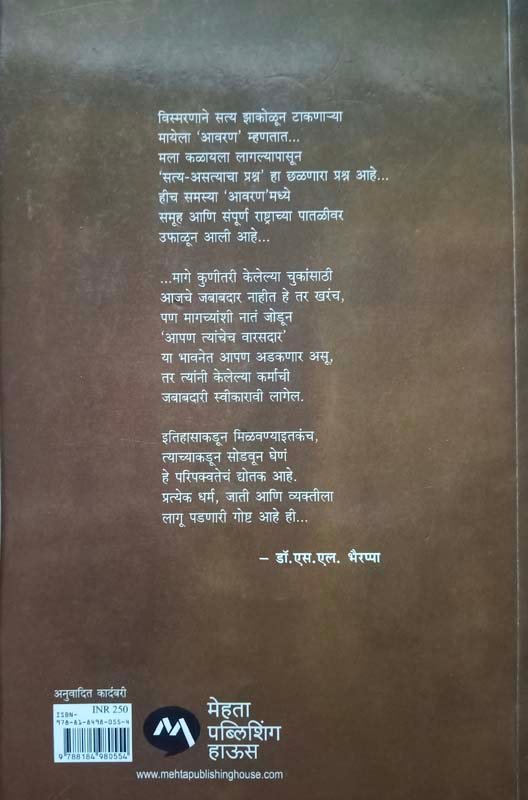 विस्मरणाने सत्य झाकोळून टाकणाऱ्या
मायेला ‘आवरण’ म्हणतात...
मला कळायला लागल्यापासून
‘सत्य-असत्याचा प्रश्न’ हा छळणारा प्रश्न आहे...
हीच समस्या ‘आवरण’मध्ये
समूह आणि संपूर्ण राष्ट्राच्या पातळीवर
उफाळून आली आहे...
...मागे कुणीतरी केलेल्या चुकांसाठी
आजचे जबाबदार नाहीत हे तर खरंच,
पण मागच्यांशी नातं जोडून
‘आपण त्यांचेच वारसदार’
या भावनेत आपण अडकणार असू,
तर त्यांनी केलेल्या कर्माची
जबाबदारी स्वीकारावी लागेल.
इतिहासाकडून मिळवण्याइतकंच,
त्याच्याकडून सोडवून घेणं
हे परिपक्वतेचं द्योतक आहे.
प्रत्येक धर्म, जाती आणि व्यक्तीला
लागू पडणारी गोष्ट आहे ही...
– डॉ.एस.एल. भैरप्पा
अनुवादित कादंबरी
ISBN- INR 250
978-81-8498-055-4
9 788184 980554
मेहता
पब्लिशिंग
हाऊस
www.mehtapublishinghouse.com